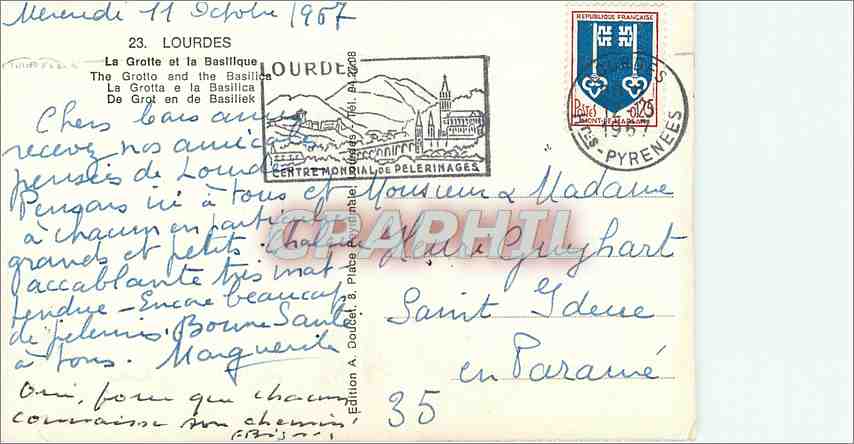 Mercredi 11 Octobre 1967
23. LOURDES
La Grotte et la Basilique
The Grotto and the Basilica
La Grotta e la Basilica
De Grot en de Basiliek
Chers bons amis
recevez nos amicales
pensées de Lourdes
Pensons ici à tous et
à chacun en particulier
grands et petits. Chaleur
accablante très inat-
tendue - Encore beaucoup
de pelerins. Bonne Santé
à tous. Marguerite
Oui, pour que chacun
connaisse son chemin
Edition A. Doucet, 8, Place Peyramale, Lourdes - Tél. 94.27.08
LOURDES
CENTRE MONDIAL DE PELERINAGES
REPUBLIQUE FRANÇAISE
POSTES
0,25
MONT-DE-MARSAN
LOURDES
1967
HTES-PYRENEES
Monsieur & Madame
Henri Guyhart
Saint Ideuc
en Paramé
35
CPAPHIL